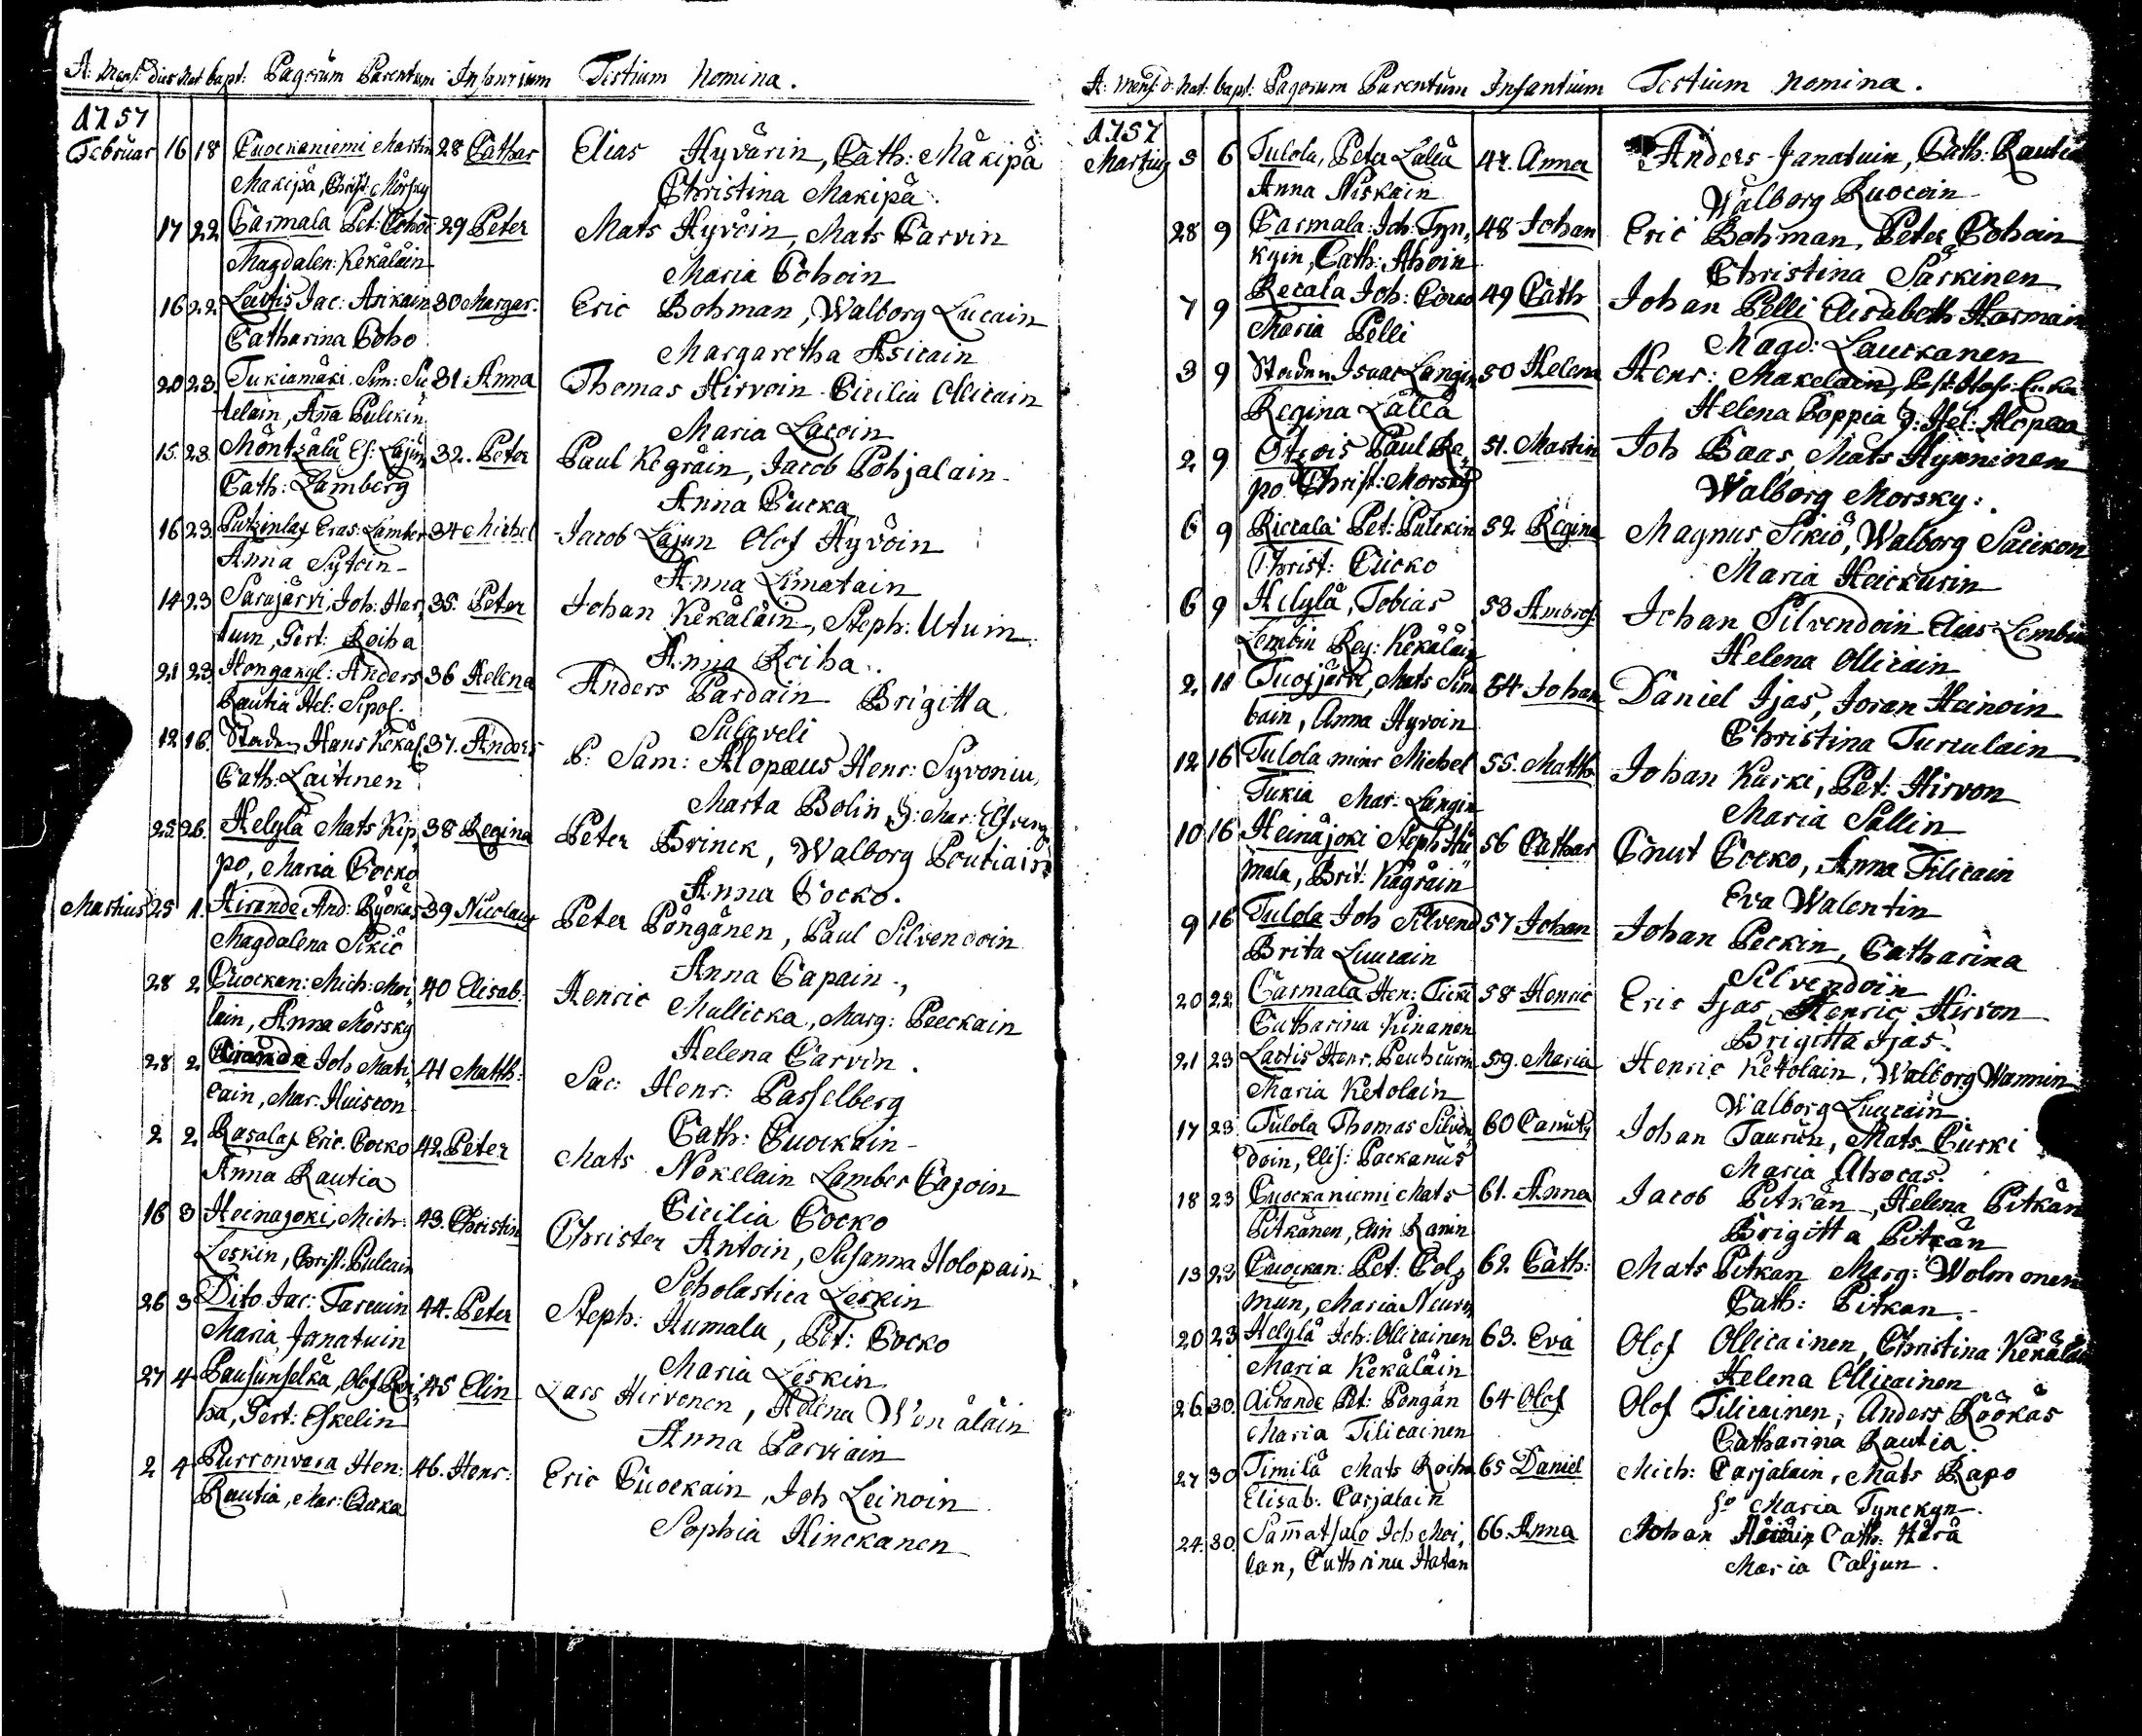 A: Mens: dies Nat bapt: Pagorum Parentum Infantium Testium Nomina.
1757
Februar 16 18 Cuockaniemi Martin 28 Cathar Elias Hyvärin, Cath: Mäkipä
Makipä, Christ: Mörsky Christina Makipä.
17 22 Carmala Pet: 29 Peter Mats Hyvöin, Mats Carvin
Magdalen: Kekäläin Maria Cohoin
16 22 Lavtis Jac: Asikain 30 Margar. Eric Bohman, Walborg Lucain
Catharina Poho Margaretha Asicain
20 23 Tukiamäki Sim: Su 31. Anna Thomas Hirvoin Cicilia Ollicain
telain, Aña Pulckin Maria Lacoin
15 23 Möntzälä Es: Lajun 32. Peter Paul Kegräin, Jacob Pohjalain
Cath: Lamberg Anna Cucka
16 23 Putzinlax Eras: Lamber 34 Michel Jacob Lajun Olof Hyvöin
Anna Sytoin Anna Limatain
14 23 Sarajärvi, Joh: Har, 35. Peter Johan Kekäläin, Steph: Utuin
tuin, Gert: Roiha Anna Roiha.
21 23 Hongakyl: Anders 36 Helena Anders Pardain Brigitta
Rautia Hel: Sipol. Sulaveli
12 16. Staden Hans Kekäl 37. Anders P: Sam: Alopæus Henr: Syvoniu,
Cath: Laitinen Marta Bolin, J: Mar: Elfving
25 26. Helylä Mats Kip, 38 Regina Peter Brinck, Walborg Poutiain
po, Maria Cocko Anna Cocko.
Martius 25 1. Airande And: Ryökäs 39 Nicolaus Peter Pöngänen, Paul Silvendoin
Magdalena Sikiö Anna Capain.
28 2 Cuockan: Mich: Moi, 40 Elisab: Henric Mullicka, Marg: Peeckain
lain, Anna Mörsky Helena Carvin.
28 2 Joh Mati, 41 Matth: Sac: Henr: Passelberg
cain, Mar. Huiscon Cath: Cuockain
2 2 Rasalax Eric. Cocko 42. Peter Mats Nokelain Lamber Cajoin
Anna Rautia Cicilia Cocko
16 3 Heinajoki, Mich: 43. Christin Christer Antoin, Susanna Holopain
Leskin, Christ: Pulcain Scholastica Leskin
26 3 Dito Jac: Tarcuin 44. Peter Steph: Humala, Pet: Cocko
Maria Janatuin Maria Leskin
27 4 Pausunselkä, Olof Roi, 45 Elin Lars Hirvonen, Helena Wänäläin
ha, Gert: Eskelin Anna Parviain
2 4 Purronvara Hen: 46. Henr: Eric Cuockain, Joh Leinoin
Rautia, Mar: Cucka Sophia Hinckanen
A: Mens: d: Nat: bapt: Pagorum Parentum Infantium Testium Nomina.
1757
Martius 5 6 Tulola, Peter Lallä 47. Anna Anders Janatuin, Cath: Rautia
Anna Niskain Walborg Ruocoin
28 9 Carmala: Joh: Tyn, 48 Johan Eric Bohman, Peter Cohoin
kyin, Cath: Ahoin Christina Särkinen
7 9 Recala Joh: 49 Cath Johan Pelli Elisabeth Harmain
Maria Pelli Magd: Lauckanen
3 9 Staden Isaac Langin 50 Helena Henr: Makelain,
Regina Lällä Helena Poppia J: Hel: Alopæa
2 9 Otzois Paul Ra, 51. Martin Joh Baas, Mats Hynninen
po Christ: Morsky Walborg Morsky.
6 9 Riccala Pet: Pulckin 52. Regina Magnus Sikiö, Walborg Saickon
Christ: Cucko Maria Haickurin
6 9 Helylä, Tobias 53 Ambros: Johan Silvendoin Elias Lembin
Lembin Reg: Kekäläin Helena Ollicain
2 11 Tuosjärvi, Mats Sim 54 Johan Daniel Ijas, Joran Heinoin
bain, Anna Hyvoin Christina Turculain
12 16 Tulola minr Michel 55. Matth Johan Kurki, Pet: Hirvon
Tukia Mar: Langin Maria Sallin
10 16 Heinäjoki Steph: Hu 56 Cathar Cnut Cocko, Anna Tilicain
mala, Brit: Kägräin Eva Walentin
9 16 Tulola Joh Silvend 57 Johan Johan Peckin, Catharina
Brita Luucain Silvendoin
20 22 Carmala Hen: 58 Henric Eric Ijas, Henric Hirvon
Catharina Kinanen Brigitta Ijas.
21 23 Lavtis Henr. Peuhcurin 59. Maria Henric Ketolain, Walborg Wannin
Maria Ketolain Walborg Luucain.
17 23 Tulola Thomas Silven, 60 Canutg Johan Taurun, Mats Curki
doin, Elis: Packanus Maria Ahocas.
18 23 Cuockaniemi Mats 61. Anna Jacob Pitkän, Helena Pitkän
Pitkänen, Elin Ranin Brigitta Pitkän
13 23 Cuockan: Pet: Col, 62. Cath: Mats Pitkan Marg: Wolmonen
mun, Maria Neuvn Cath: Pitkan.
20 23 Helylä Joh: Ollicainen 63. Eva Olof Ollicainen, Christina Kekäläi
Maria Kekäläin Helena Ollicainen
26. 30. Airande Pet: Pongän 64 Olof Olof Tilicainen, Anders Röökäs
Maria Tilicainen Catharina Rautia.
27 30 Timilä Mats Roiha 65 Daniel Mich: Carjalain, Mats Rapo
Elisab: Carjalain Maria Tynckyn
24. 30. Sam̄atsalo Joh Moi, 66. Anna Johan Cath: Härä
lan, Cathrina Hatan Maria Caljun.